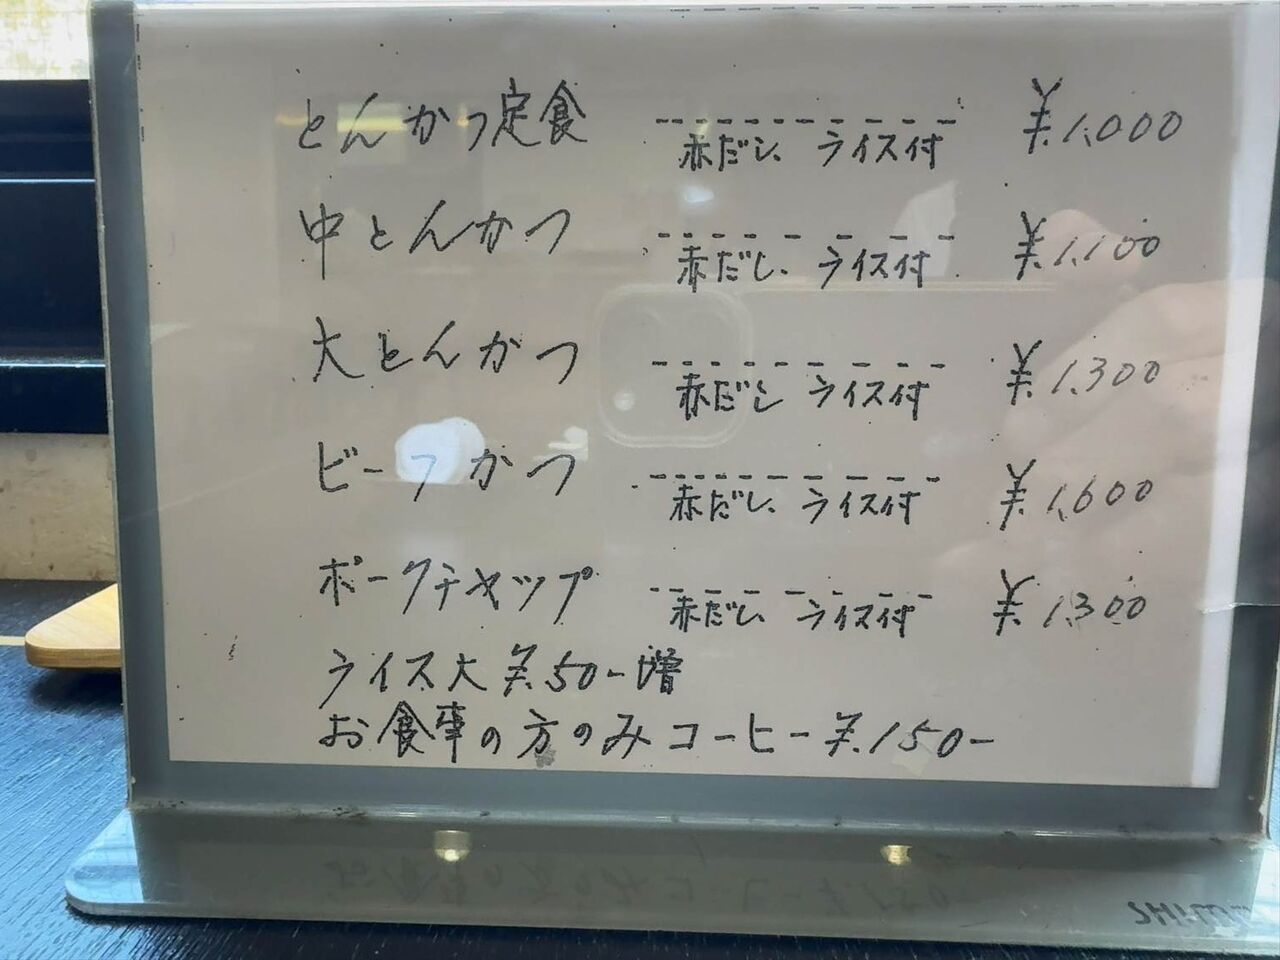 とんかつ定食 ---------- ¥1.000
赤だし、ライス付
中とんかつ -------- ¥1.100
赤だし、ライス付
大とんかつ --------- ¥1.300
赤だし ライス付
ビーフかつ ----------- ¥1.600
赤だし、ライス付
ポークチャップ --------- ¥1.300
赤だし、ライス付
ライス大 ¥.50-増
お食事の方のみコーヒー ¥.150-